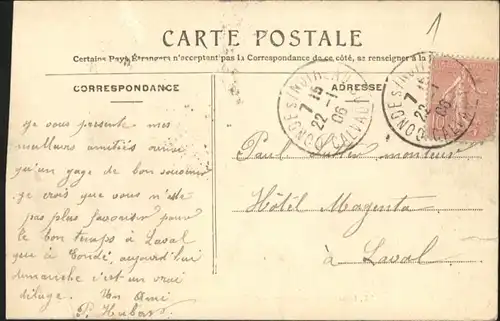 1
CARTE POSTALE
Certains Pays Étrangers n'acceptant pas la Correspondance de ce côté, se renseigner à la
CORRESPONDANCE
ADRESSE
Je vous présente mes
meilleurs amitiés ainsi
qu'un gage de bon souvenir
Je crois que vous n'ete
pas plus favoriser pour
le bon temps à Laval
que à Condé, aujourd'hui
dimanche c'est un vrai
déluge. Vos Ami
P. Hubert
Paul monteur
Hôtel Magenta
à Laval
7 15
22 -1
06
CALVADOS
7 15
22 -1
06